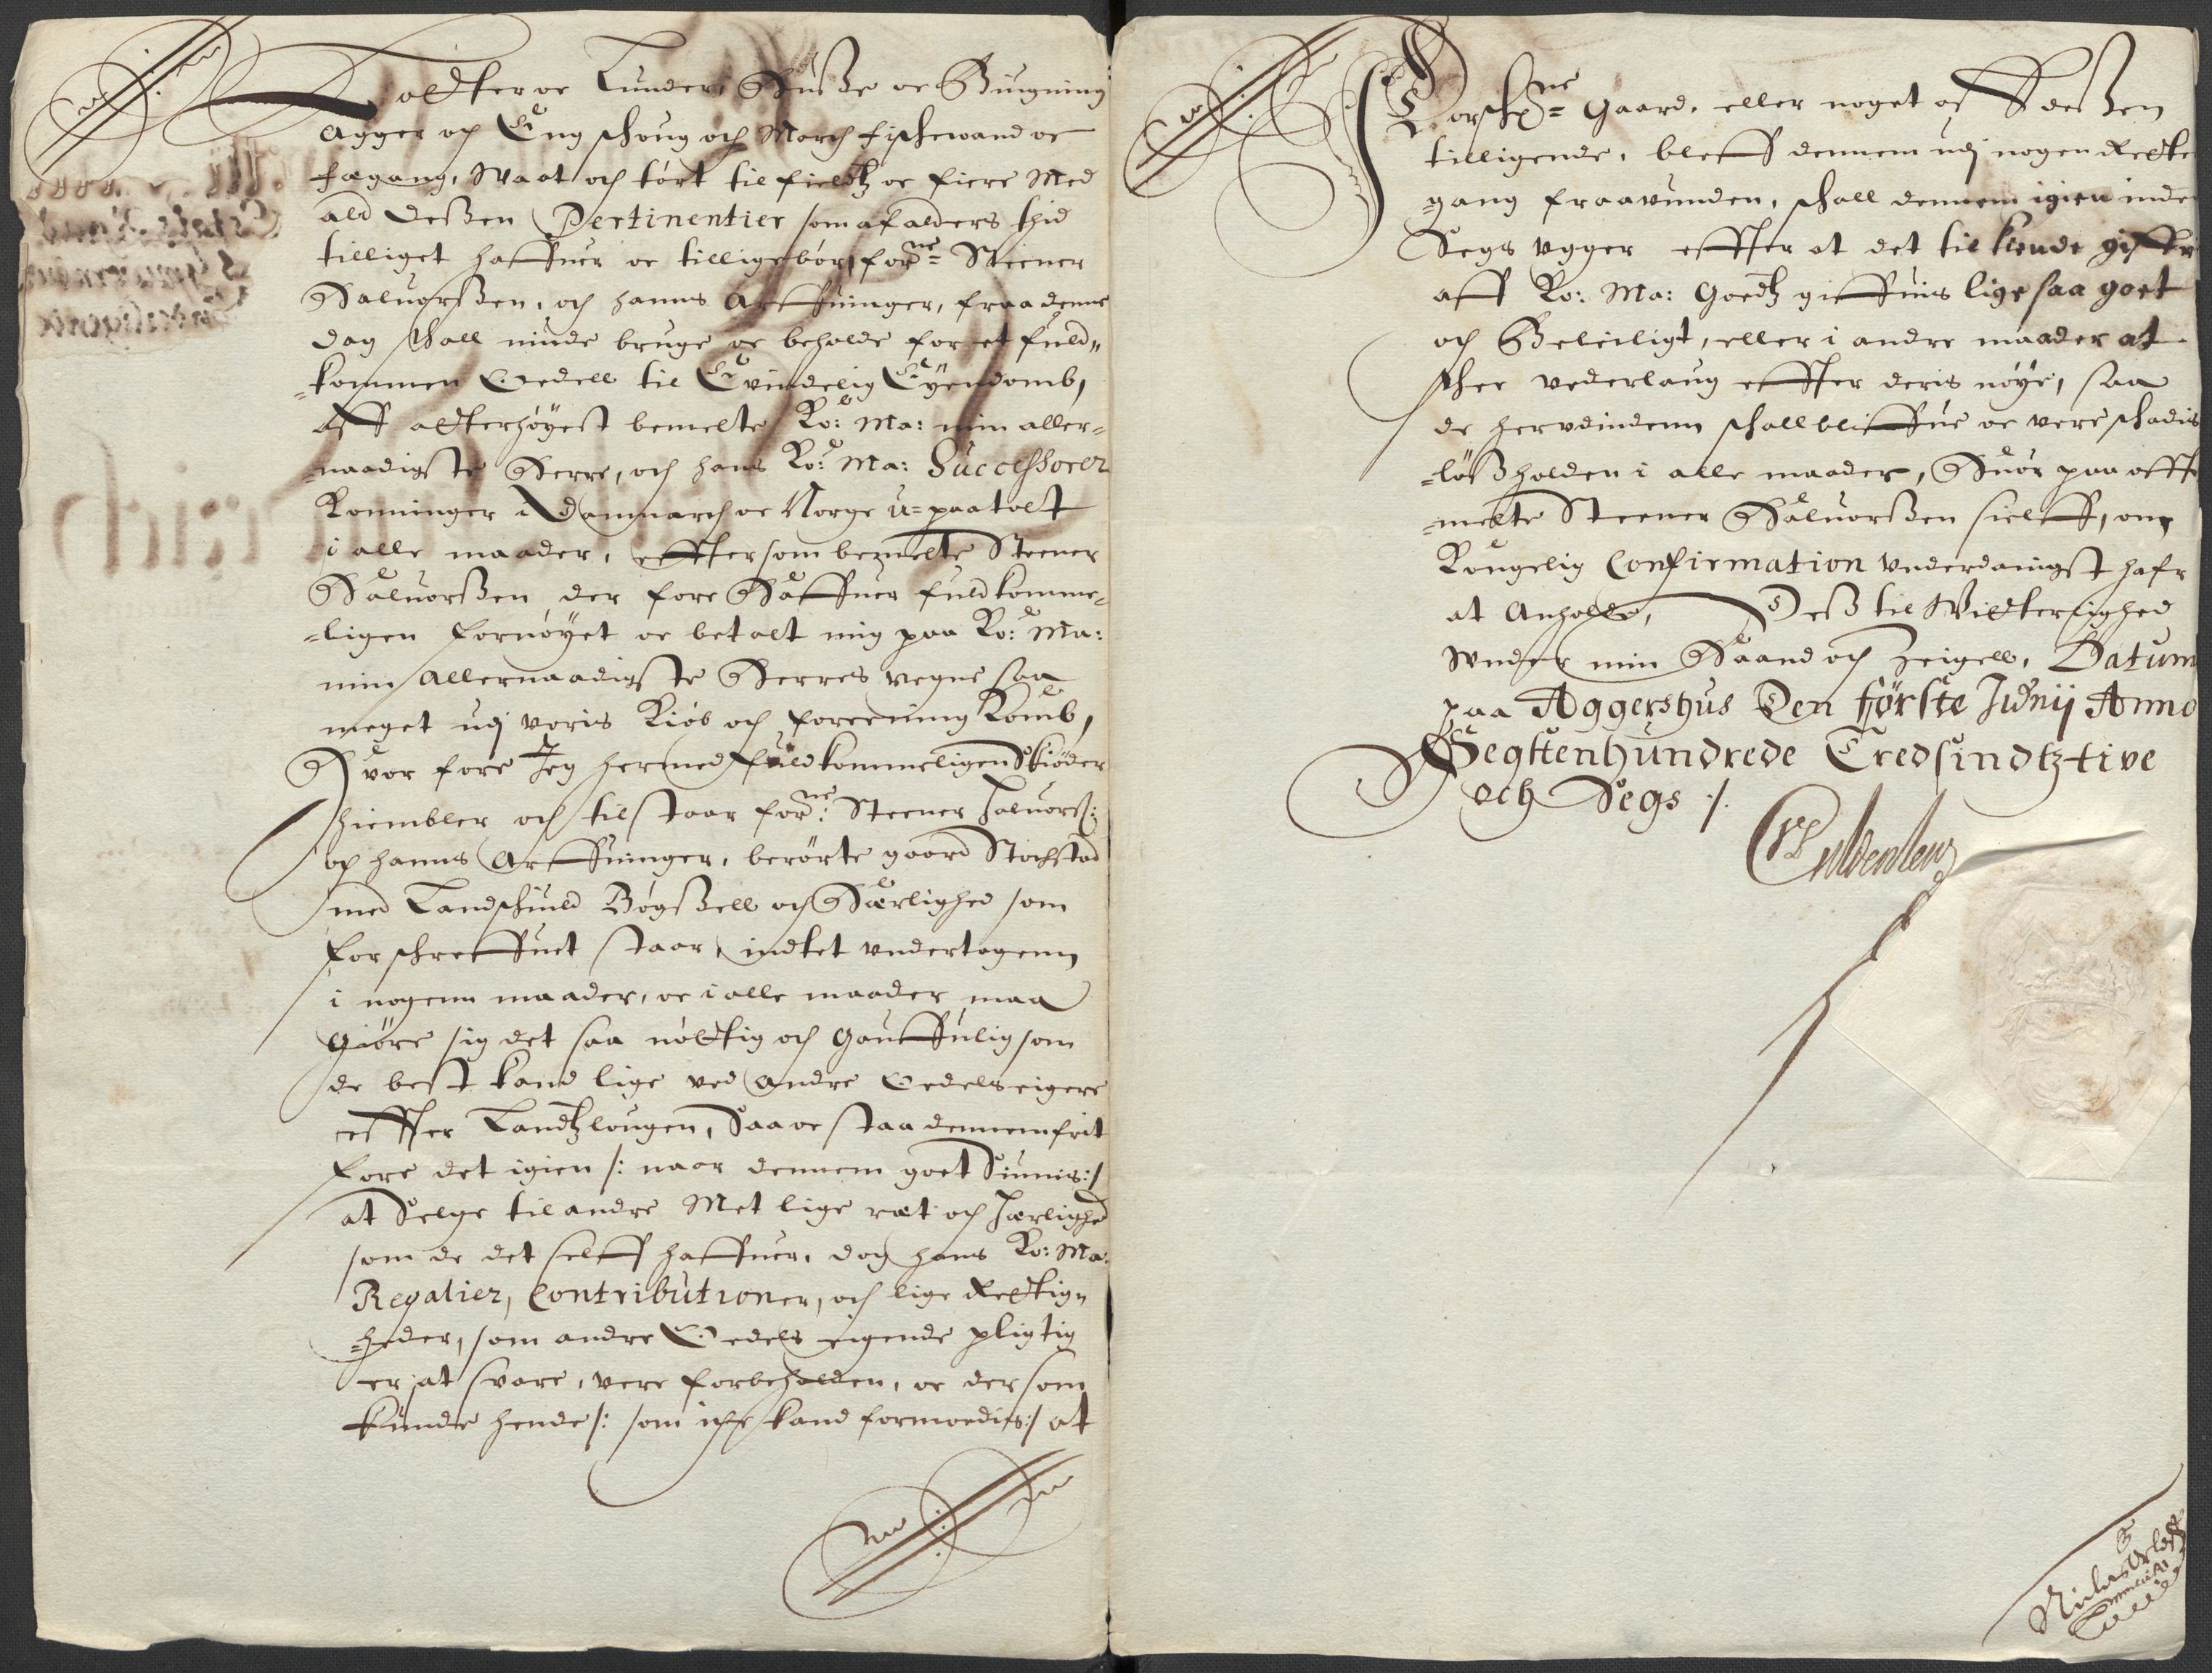 Lodter oc Lunder, Huusze oc Bŭigning
Agger och Eng schoug och March fischewand oc
fægang, Waat och tört til fieldtz oc fiere Med
ald deszen Pertinentier som af alders thid
tilliget haffuer oc tilligebör, forne Steener
Haluorszen, och hanns Arffuinger, fraa denne
dag schall niude bruge oc beholde for et fuld„
=kommen Oedell til Evindelig Eyendomb,
Aff alterhöyest bemelte Ko: Ma: min aller=
=naadigste Herre, och hans Ko: Ma: Successorer
Konninger i Danmarch oc Norge u=paatalt
i alle maader, effter som bemelte Steener
Haluorszen der fore Haffuer fuldkomme=
=ligen fornöyet oc betalt mig paa Ko: Ma:
min Allernaadigste Herres vegne saa
meget udj voris Kiöb och foreening Komb,
Hvor fore Jeg hermed fuldkommeligen Skiöder
hiembler och tilstaar forne: Steener Haluorsz:
og hanns Arffuinger, berörte gaard Stochstad
med Landschuld Bögszell och Herlighed som
forschreffuet staar, indtet undertagenn
i nogenn maader, oc i alle maader maa
Giöre sig det saa nöttig och Gauffnlig som
de best kand lige ved Andre Oedels eigere
effter Landtzlougen, Saa oc staa dennem frit
fore det igien /: naar dennem got Siunis :/
at Selge til andre Met lige ræt och Herlighed
som de det selff haffuer, dog hans Ko: Ma:
Regalier, Contributioner, och lige Rettig„
=heder, som andre Oedels eigende pligtig
er at svare, vere forbeholden, oc der som
kunde hende /: som iche kand formodis :/ at
Forschne Gaard, eller noget af deszen
tilligende, bleff dennem udj nogen Rette
=gang fraavunden, schall dennem igien inden
Segs Ugger effter at det til kiende giffvis
aff Ko: Ma: Goedtz giffuis lige saa goet
och Beleiligt, eller i andre maader at
schee vederlaug effter deris nöye, saa
de herudindenn schall bliffue oc vere schadis
=lösz holden i alle maader, Huor paa offte
=melte Steener Haluorszen sielff, om
Kongelig Confirmation Underdanigst hafr
at Anholde, Desz til Witterlighed
Under min Haand och Zeigell, Datum
paa Aggershus Den förste Junij Anno
Segsttenhundrede Tredsindtz=tive
och Segs ./.